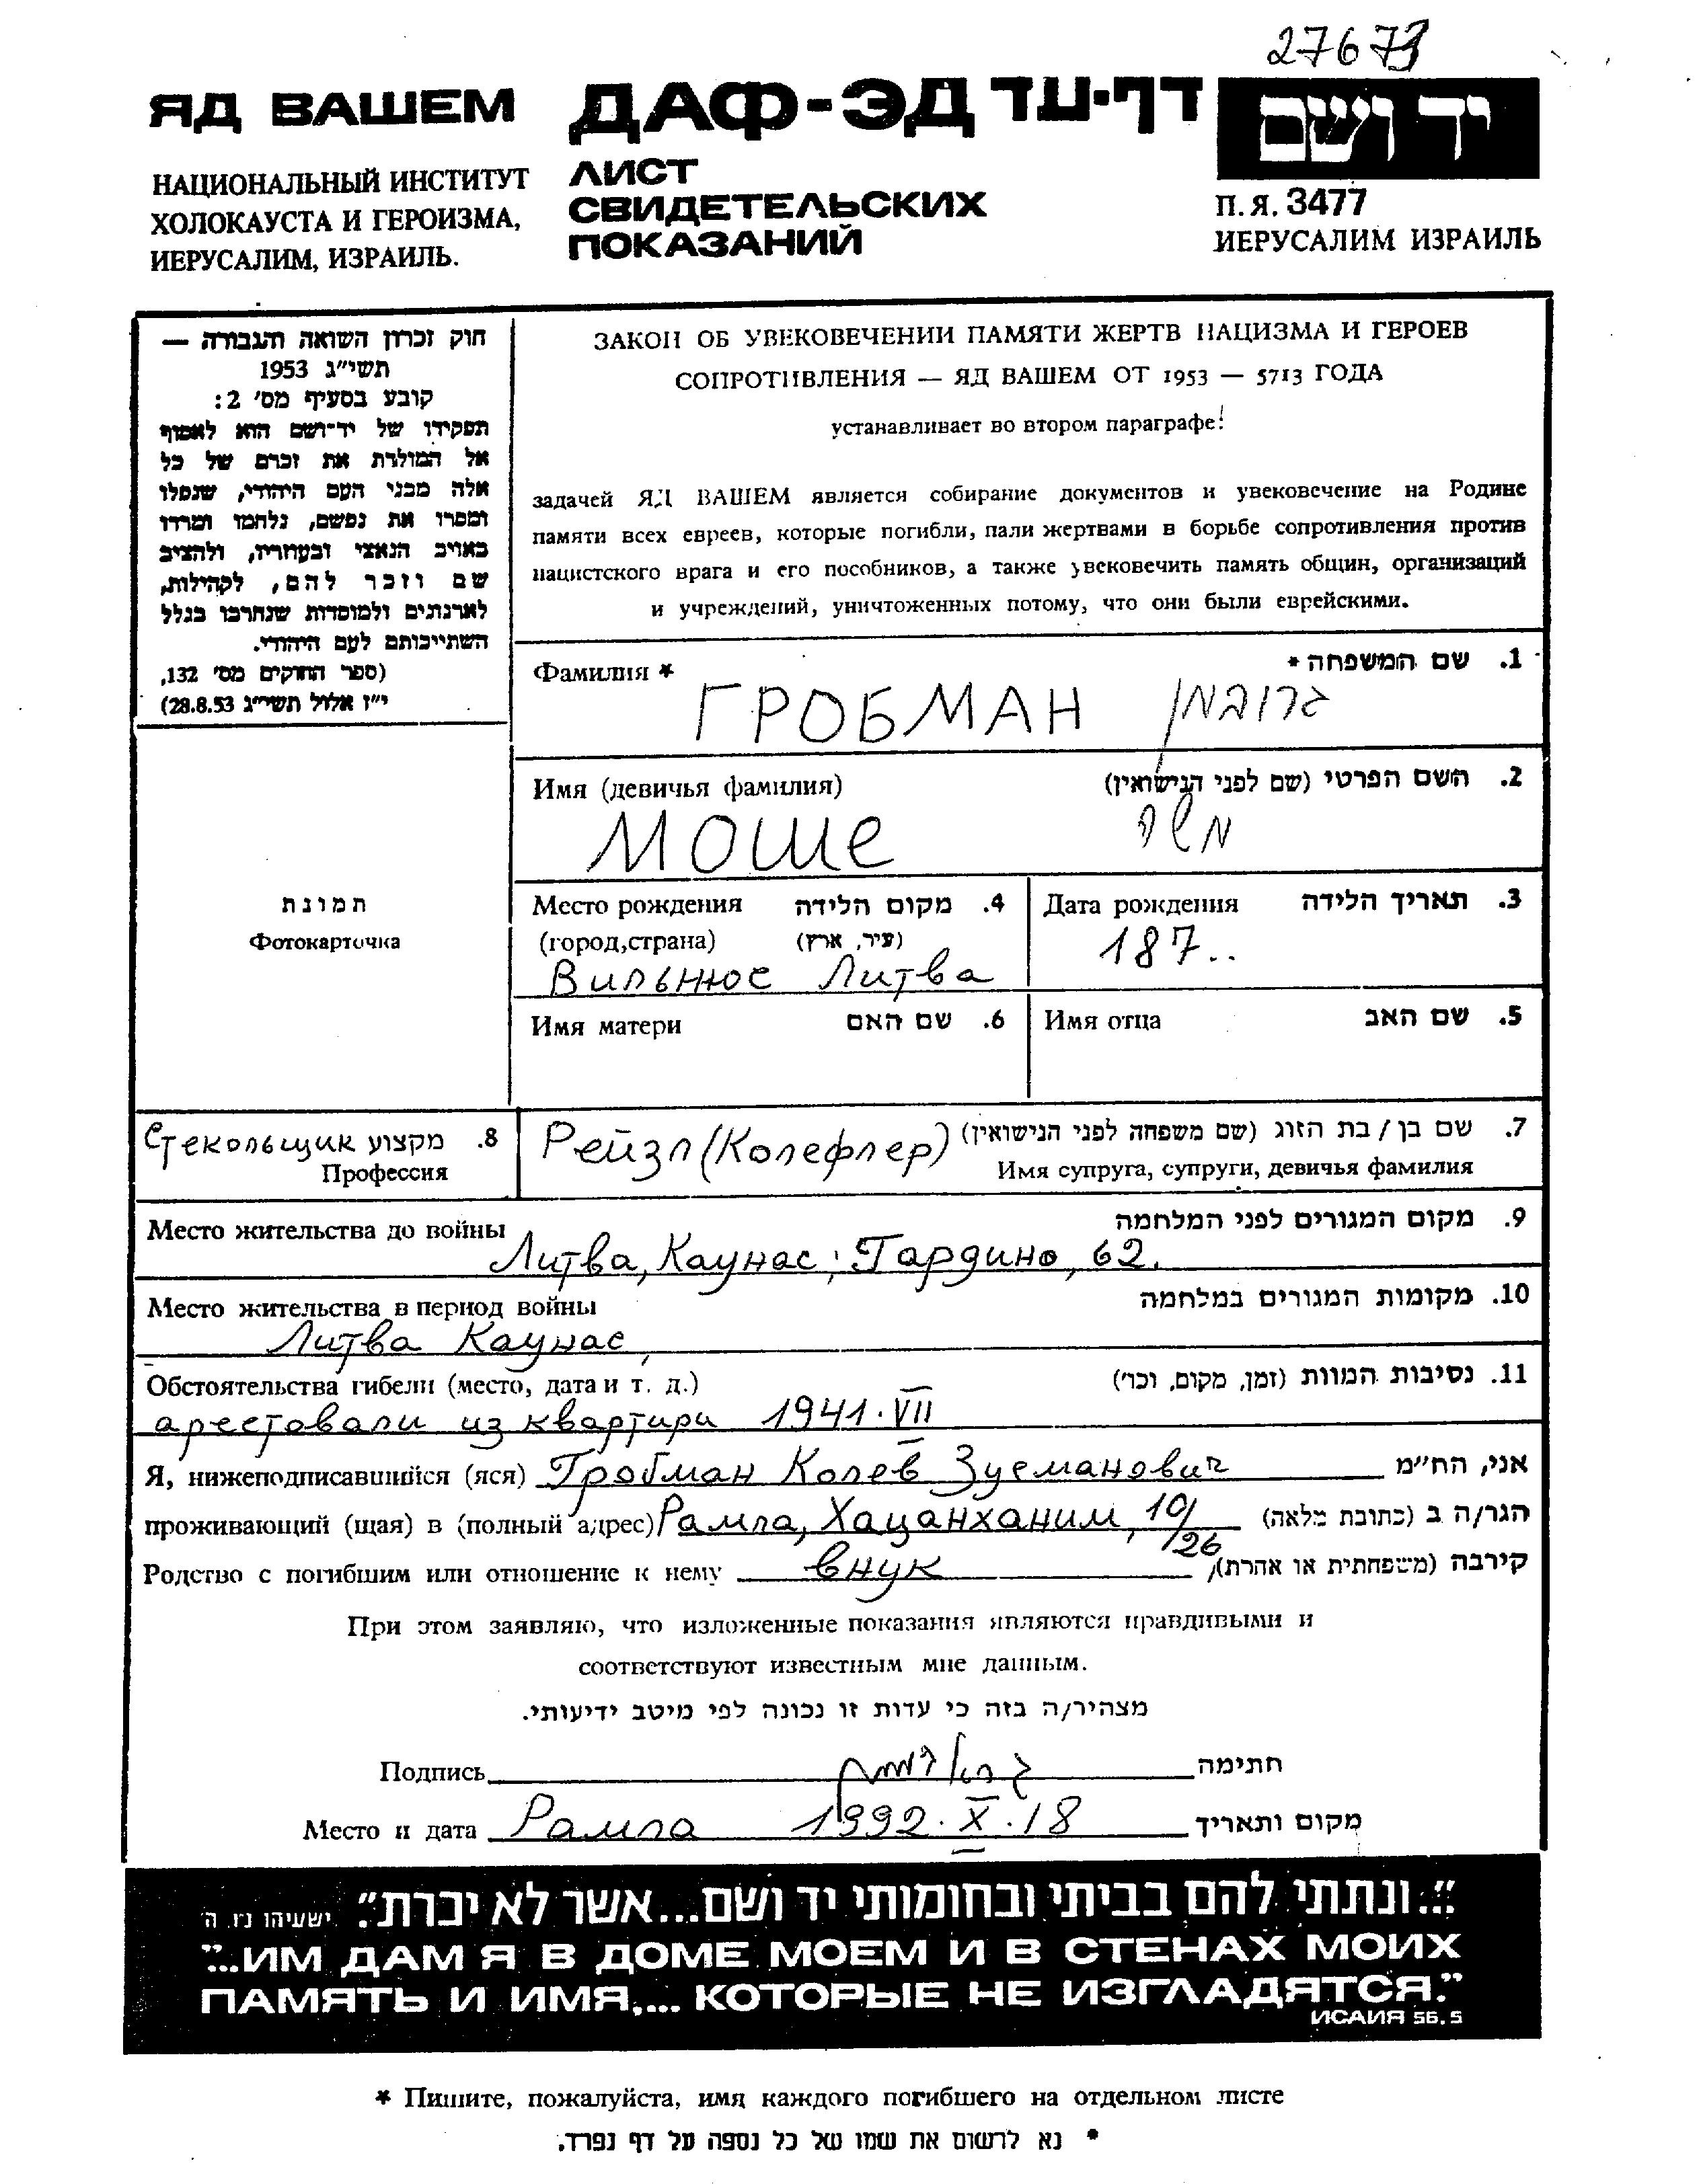 27673
ЯД ВАШЕМ
НАЦИОНАЛЬНЫЙ ИНСТИТУТ
ХОЛОКАУСТА И ГЕРОИЗМА,
ИЕРУСАЛИМ, ИЗРАИЛЬ.
ДАФ-ЭД דף-עד
ЛИСТ
СВИДЕТЕЛЬСКИХ
ПОКАЗАНИЙ
יד ושם
П.Я. 3477
ИЕРУСАЛИМ ИЗРАИЛЬ
חוק זכרון השואה והגבורה —
תשי״ג 1953
קובע בסעיף מס׳ 2:
תפקידו של יד-ושם הוא לאסוף
אל המולדת את זכרם של כל
אלה מבני העם היהודי, שנפלו
ומסרו את נפשם, נלחמו ומרדו
באויב הנאצי ובעוזריו, ולהציב
שם וזכר להם, לקהילות,
לארגונים ולמוסדות שנחרבו בגלל
השתייכותם לעם היהודי.
(ספר החוקים מס׳ 132,
י״ז אלול תשי״ג 28.8.53)
ЗАКОН ОБ УВЕКОВЕЧЕНИИ ПАМЯТИ ЖЕРТВ НАЦИЗМА И ГЕРОЕВ
СОПРОТИВЛЕНИЯ — ЯД ВАШЕМ ОТ 1953 — 5713 ГОДА
устанавливает во втором параграфе:
задачей ЯД ВАШЕМ является собирание документов и увековечение на Родине
памяти всех евреев, которые погибли, пали жертвами в борьбе сопротивления против
нацистского врага и его пособников, а также увековечить память общин, организаций
и учреждений, уничтоженных потому, что они были еврейскими.
Фамилия * 1. שם המשפחה *
ГРОБМАН גרובמן
Имя (девичья фамилия) 2. השם הפרטי (שם לפני הנישואין)
Моше משה
תמונת
Фотокарточка
Место рождения 4. מקום הלידה
(город,страна) (עיר, ארץ)
Вильнюс Литва
Дата рождения 3. תאריך הלידה
187..
Имя матери 6. שם האם
Имя отца 5. שם האב
Стекольщик 8. מקצוע
Профессия
Рейзл (Колефлер) 7. שם בן / בת הזוג (שם משפחה לפני הנישואין)
Имя супруга, супруги, девичья фамилия
Место жительства до войны 9. מקום המגורים לפני המלחמה
Литва, Каунас; Гардино, 62.
Место жительства в период войны 10. מקומות המגורים במלחמה
Литва Каунас,
Обстоятельства гибели (место, дата и т. д.) 11. נסיבות המוות (זמן, מקום, וכו׳)
арестовали из квартири 1941.VII
Я, нижеподписавшийся (яся) Гробман Колев Зусманович אני, הח״מ
проживающий (щая) в (полный адрес) Рамла, Хацанханим, 10/26 הגר/ה ב (כתובת מלאה)
Родство с погибшим или отношение к нему внук קירבה (משפחתית או אחרת)
При этом заявляю, что изложенные показания являются правдивыми и
соответствуют известным мне данным.
מצהיר/ה בזה כי עדות זו נכונה לפי מיטב ידיעותי.
Подпись חתימה
Место и дата Рамла 1992.X.18 מקום ותאריך
"...ונתתי להם בביתי ובחומותי יד ושם...אשר לא יכרת". ישעיהו נו, ה
"...ИМ ДАМ Я В ДОМЕ МОЕМ И В СТЕНАХ МОИХ
ПАМЯТЬ И ИМЯ,... КОТОРЫЕ НЕ ИЗГЛАДЯТСЯ."
ИСАИЯ 56.5
* Пишите, пожалуйста, имя каждого погибшего на отдельном листе
* נא לרשום את שמו של כל נספה על דף נפרד.